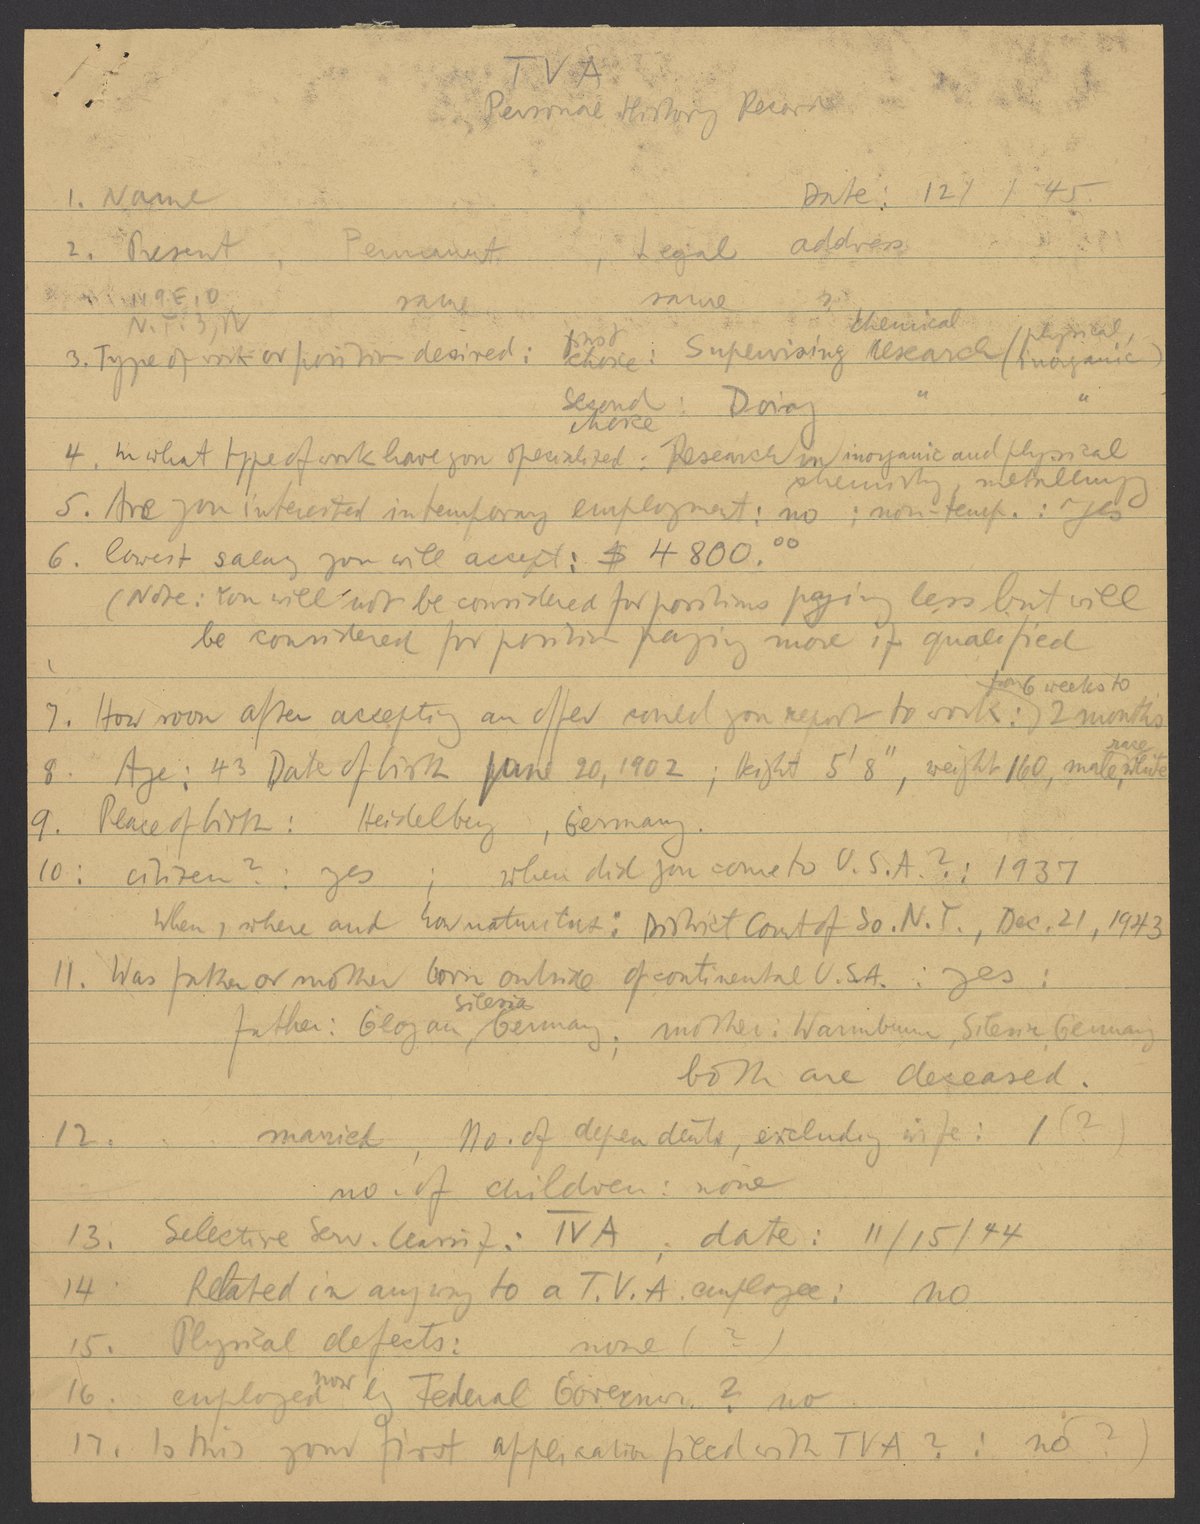 T V A
Personal History Record
1. Name Date: 12/ / 45
2. Present , Permanent , Legal address
119 E. D same same ?
N.Y. 3, N
3. Type of work or position desired: first choice: Supervising chemical research (physical, inorganic)
second choice : Doing " "
4. In what type of work have you specialized: Research in inorganic and physical
chemistry, metallurgy
5. Are you interested in temporary employment: no ; non-temp. : yes
6. lowest salary you will accept: $ 4800.00
(Note: You will not be considered for positions paying less but will
be considered for position paying more if qualified
7. How soon after accepting an offer could you report to work: from 6 weeks to 2 months
8. Age: 43 Date of birth June 20, 1902 ; Height 5' 8", weight 160, male, race white
9. Place of birth: Heidelberg , Germany.
10: citizen? : yes ; when did you come to U.S.A.? : 1937
When, where and how : District Court of So. N.Y., Dec. 21, 1943
11. Was father or mother born outside of continental U.S.A. : yes :
father: Glogau, Silesia Germany; mother: Warmbrunn, Silesia Germany
both are deceased.
12. married , No. of dependents, excluding wife: 1 (?)
no. of children: none
13. Selective Serv. Classif.: IVA , date: 11/15/44
14 Related in anyway to a T.V.A. employee: no
15. Physical defects: none (?)
16. employed now by Federal Governm. ? no
17. Is this your first application filed with TVA ? : no ?)